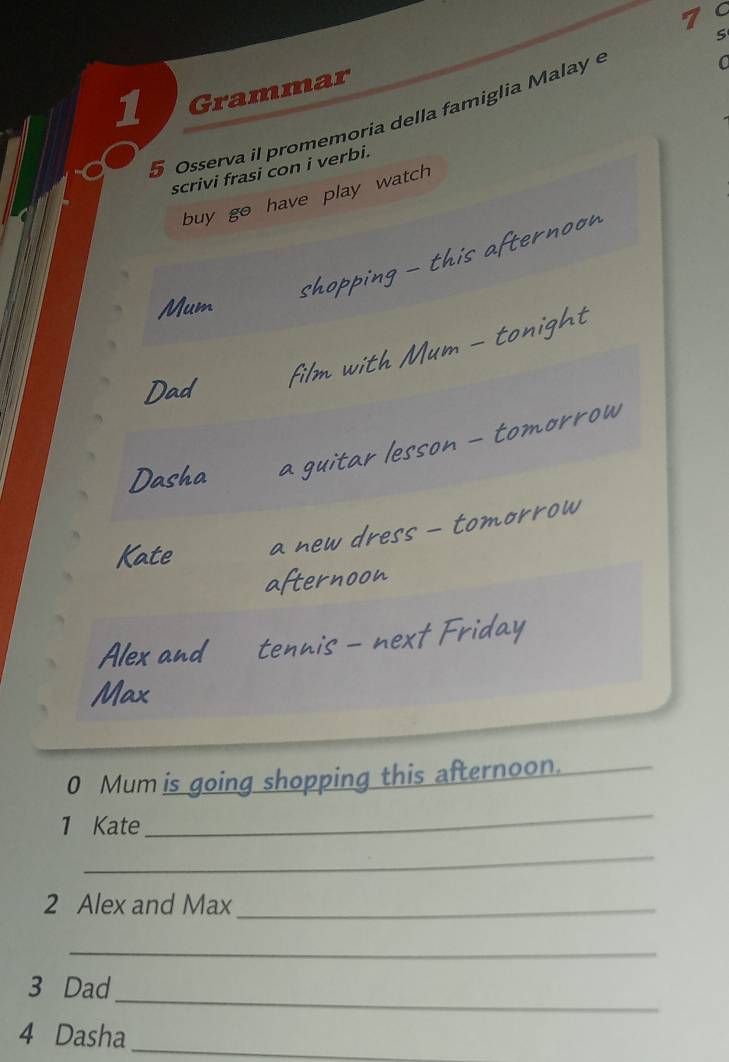 7 C
s
1 Grammar
5 Osserva il promemoria della famiglia Malay e
scrivi frasi con i verbi.
buy go have play watch
Mum shopping – this afternoon
Dad film with Mum – tonight
Dasha a guitar lesson – tomorrow
Kate a new dress – tomorrow
afternoon
Alex and tennis – next Friday
Max
0 Mum is going shopping this afternoon.
1 Kate
2 Alex and Max
3 Dad
4 Dasha